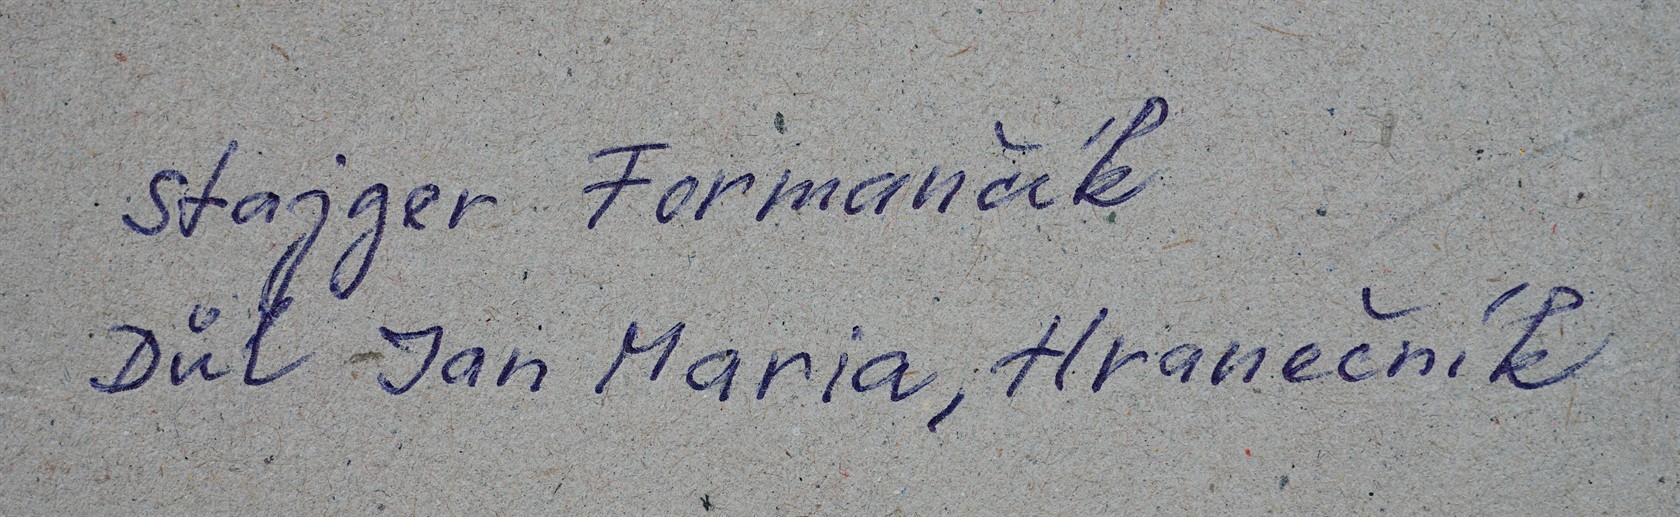 Stajger Formančík
Důl Jan Maria, Hranečník